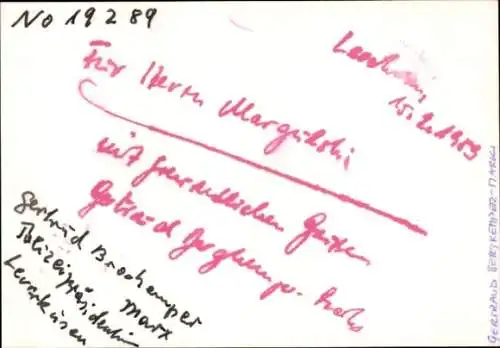 No 19289
Leverkusen,
15.2.1989
Für Herrn Margulski
mit freundlichen Grüßen
Gertrud Bergkemper-Marks
gertrud Brochemper
Marx
Polizeipräsidentin
Leverkusen
GERTRAUD BERGKEMPER-MARKS